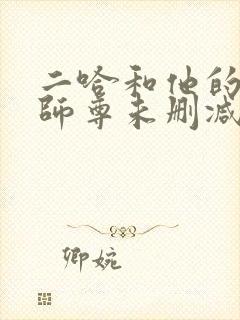 二哈和他的
師尊未删减
卿婉